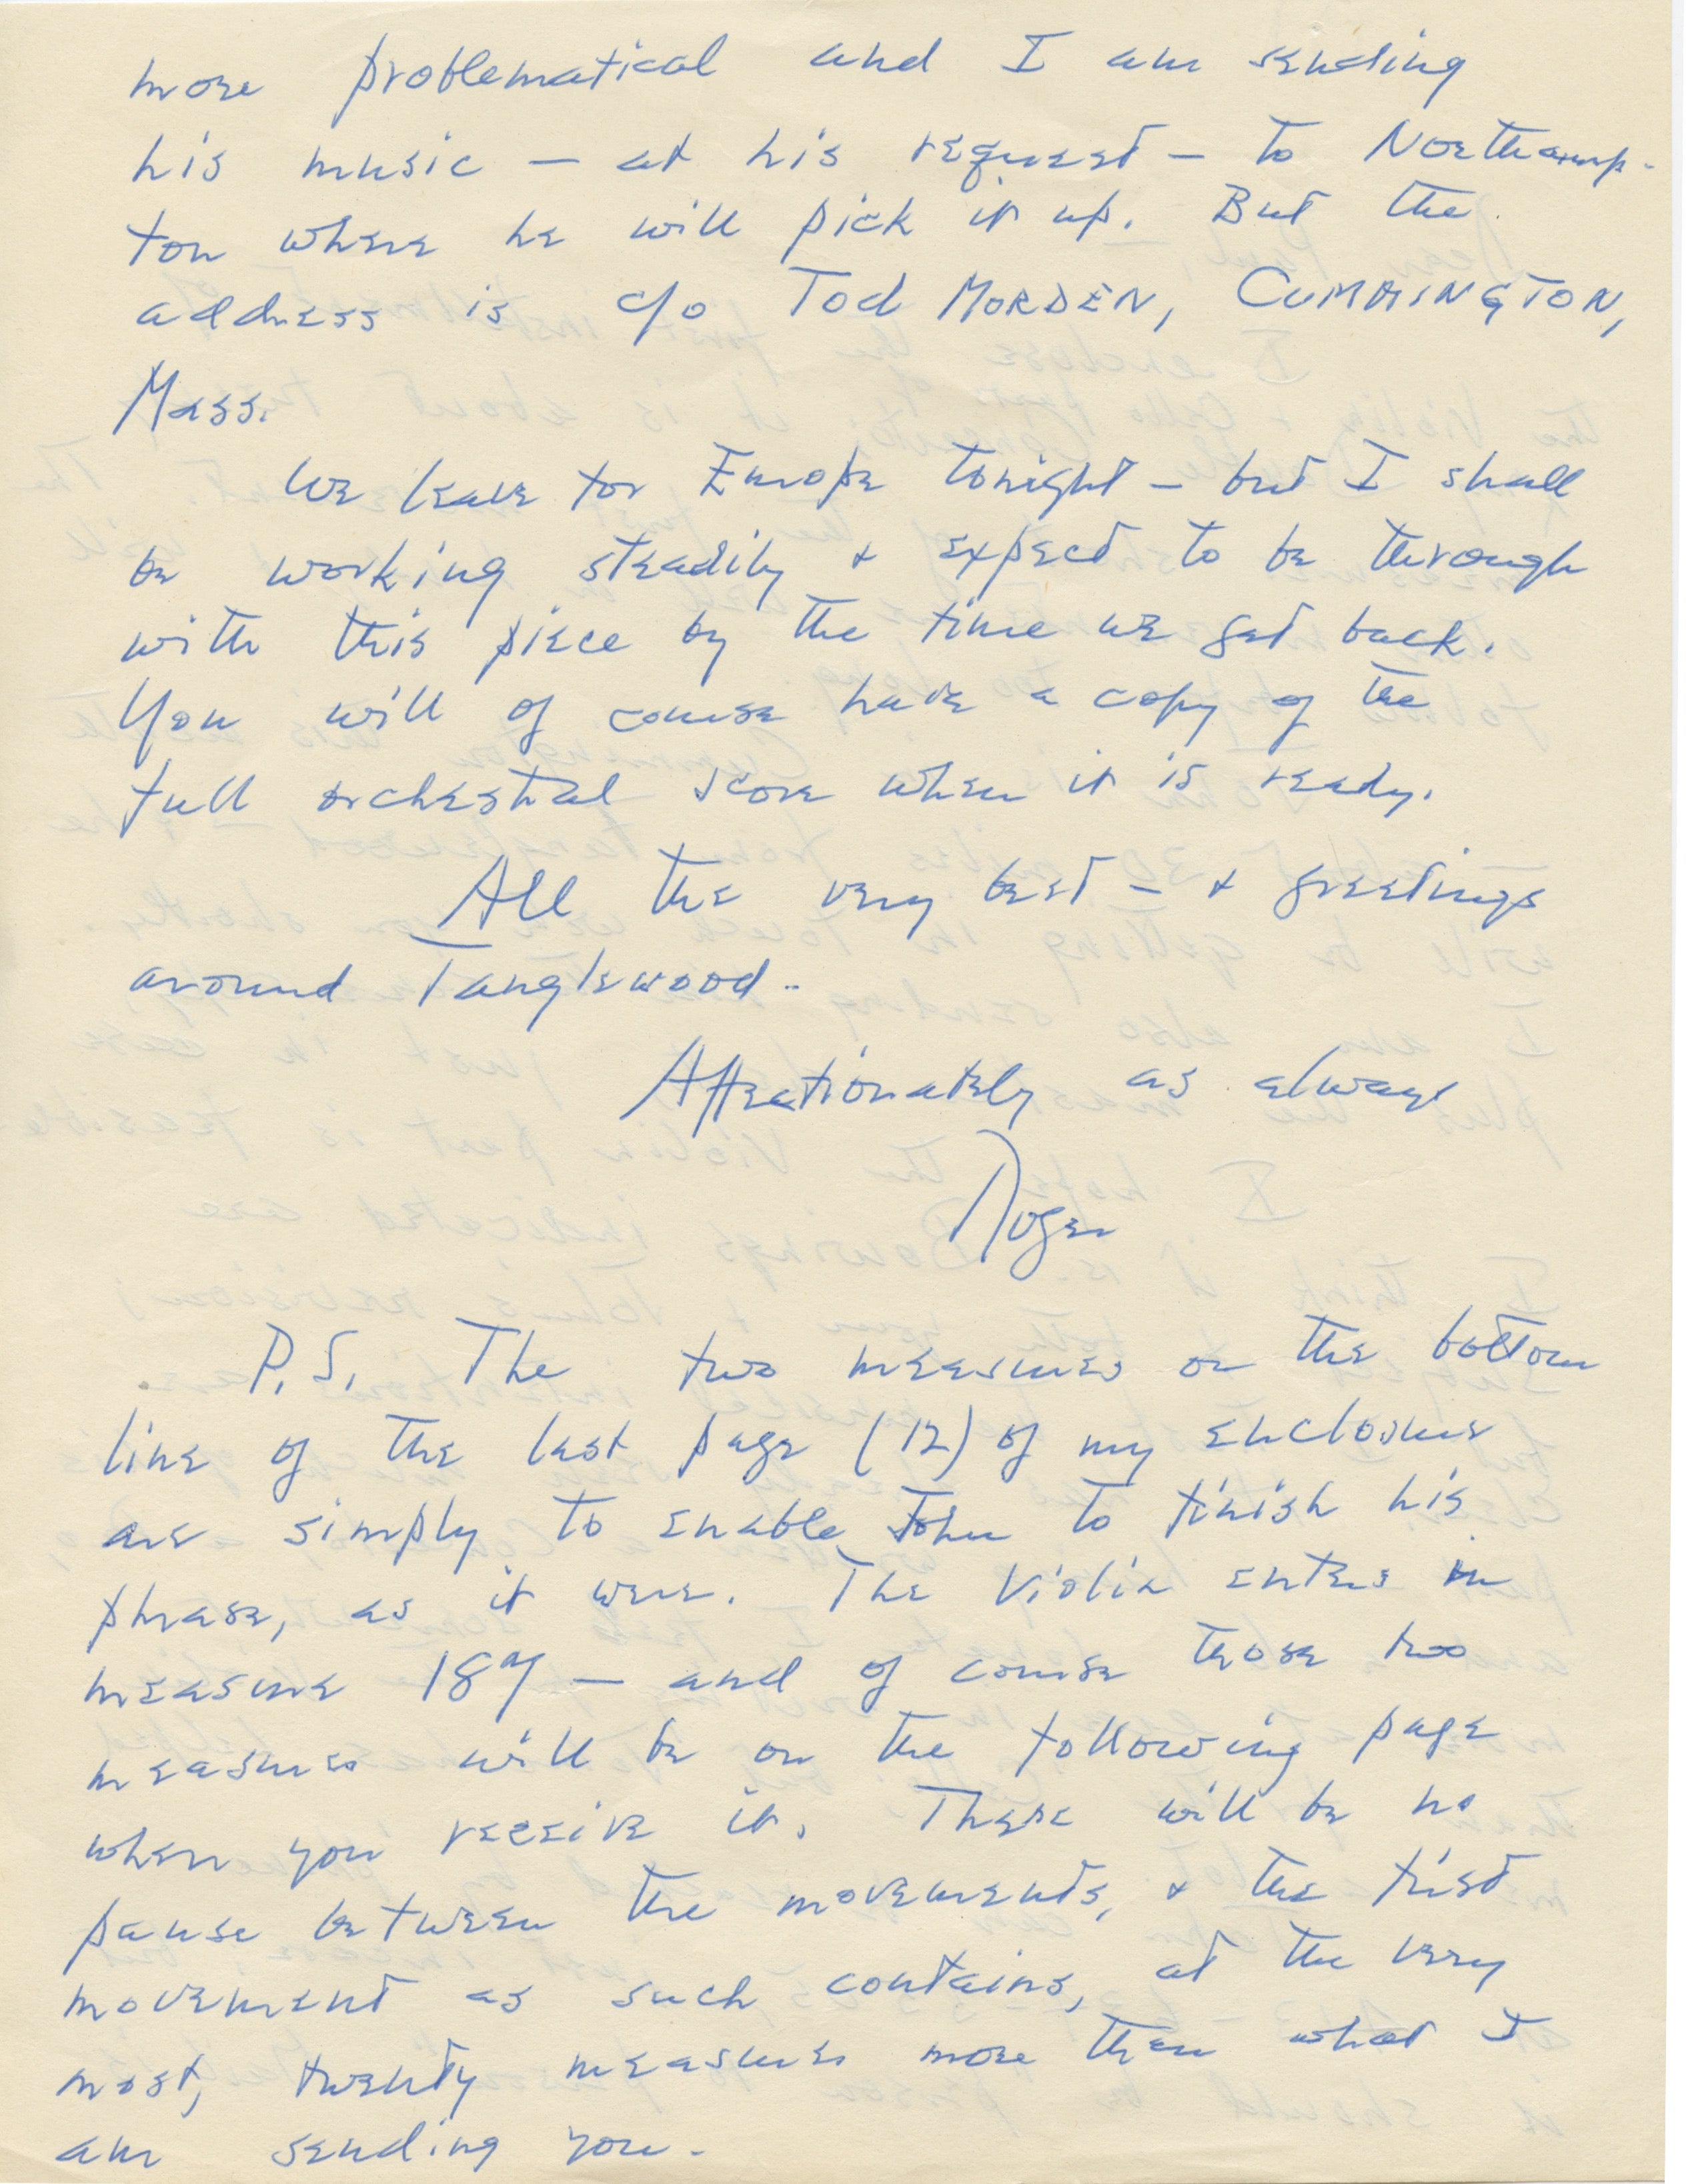 more problematical and I am sending
his music – at his request – to Northamp-
ton where he will pick it up. But the
address is c/o Tod MORDEN, CUMMINGTON,
Mass.
We leave for Europe tonight – but I shall
be working steadily & expect to be through
with this piece by the time we get back.
You will of course have a copy of the
full orchestral score when it is ready.
All the very best – & greetings
around Tanglewood..
Affectionately as always
Roger
P.S. The two measures on the bottom
line of the last page (12) of my enclosure
are simply to enable John to finish his
phrase, as it were. The Violin enters in
measure 189 – and of course those two
measures will be on the following page
when you receive it. There will be no
pause between the movements, & the first
movement as such contains, at the very
most, twenty measures more than what I
am sending you.